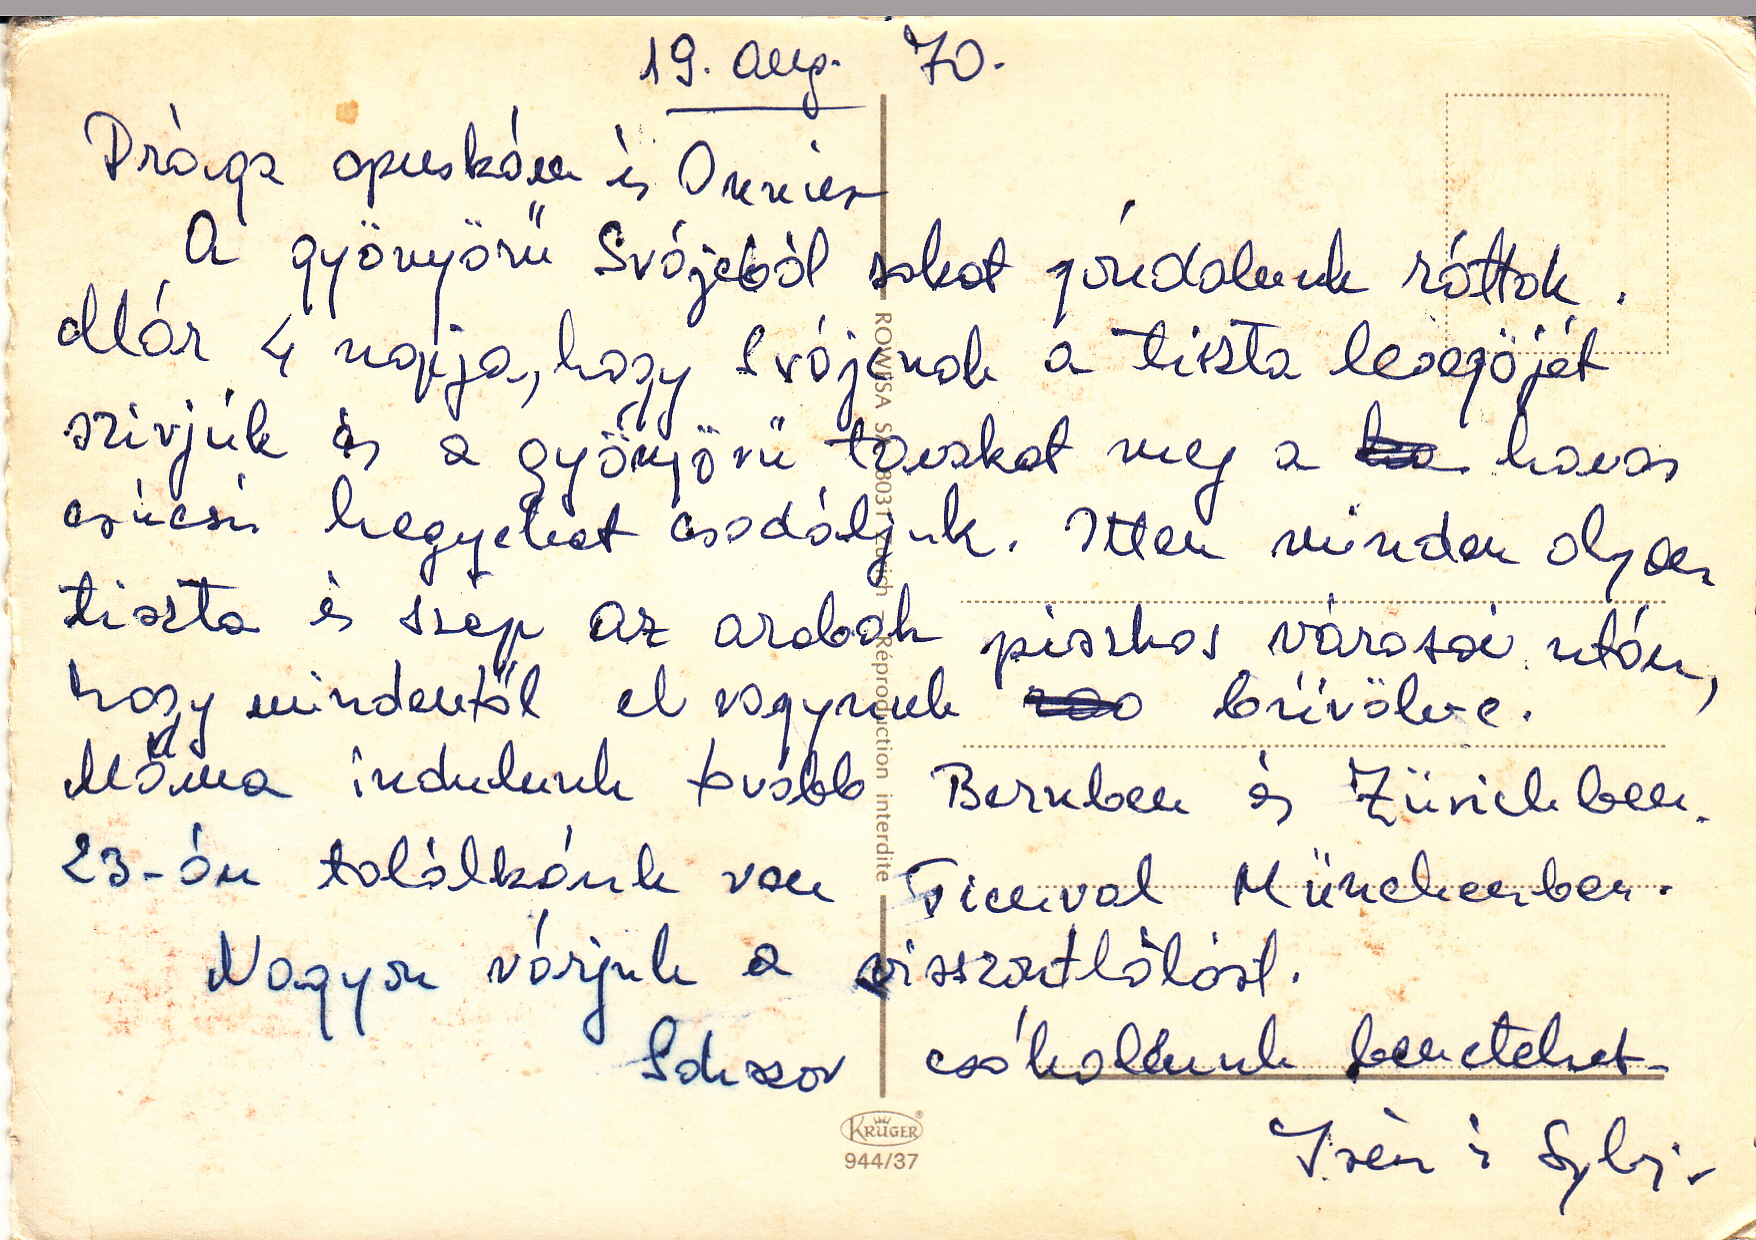 19. aug. 70.
Drága apuskám és
A gyönyörü Svájcból sokat gondolunk rátok.
Már 4 napja, hogy Svájcnak a tiszta levegöjét
szivjuk és a gyönyörü tavakat meg a havas
csúcsú hegyeket csodáljuk. Itten minden olyan
tiszta és szép az arabok piszkos városai után,
hogy mindentöl el vagyunk büvölve.
Máma indulunk tovább Bernben és Zürichben.
23-án találkánk van Ticuval Münchenben.
Nagyon várjuk a viszontlátást.
Sokszor csókolunk benneteket
Irén és Sylvi
ROWESA 8031 Zürich Réproduction interdite
KRÜGER
944/37